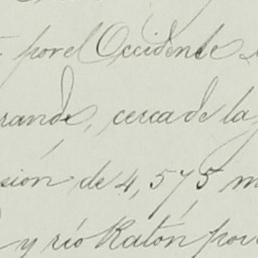 por el Occidente
rande, cerca de la
sion de 4,575 m
y río Ratón por